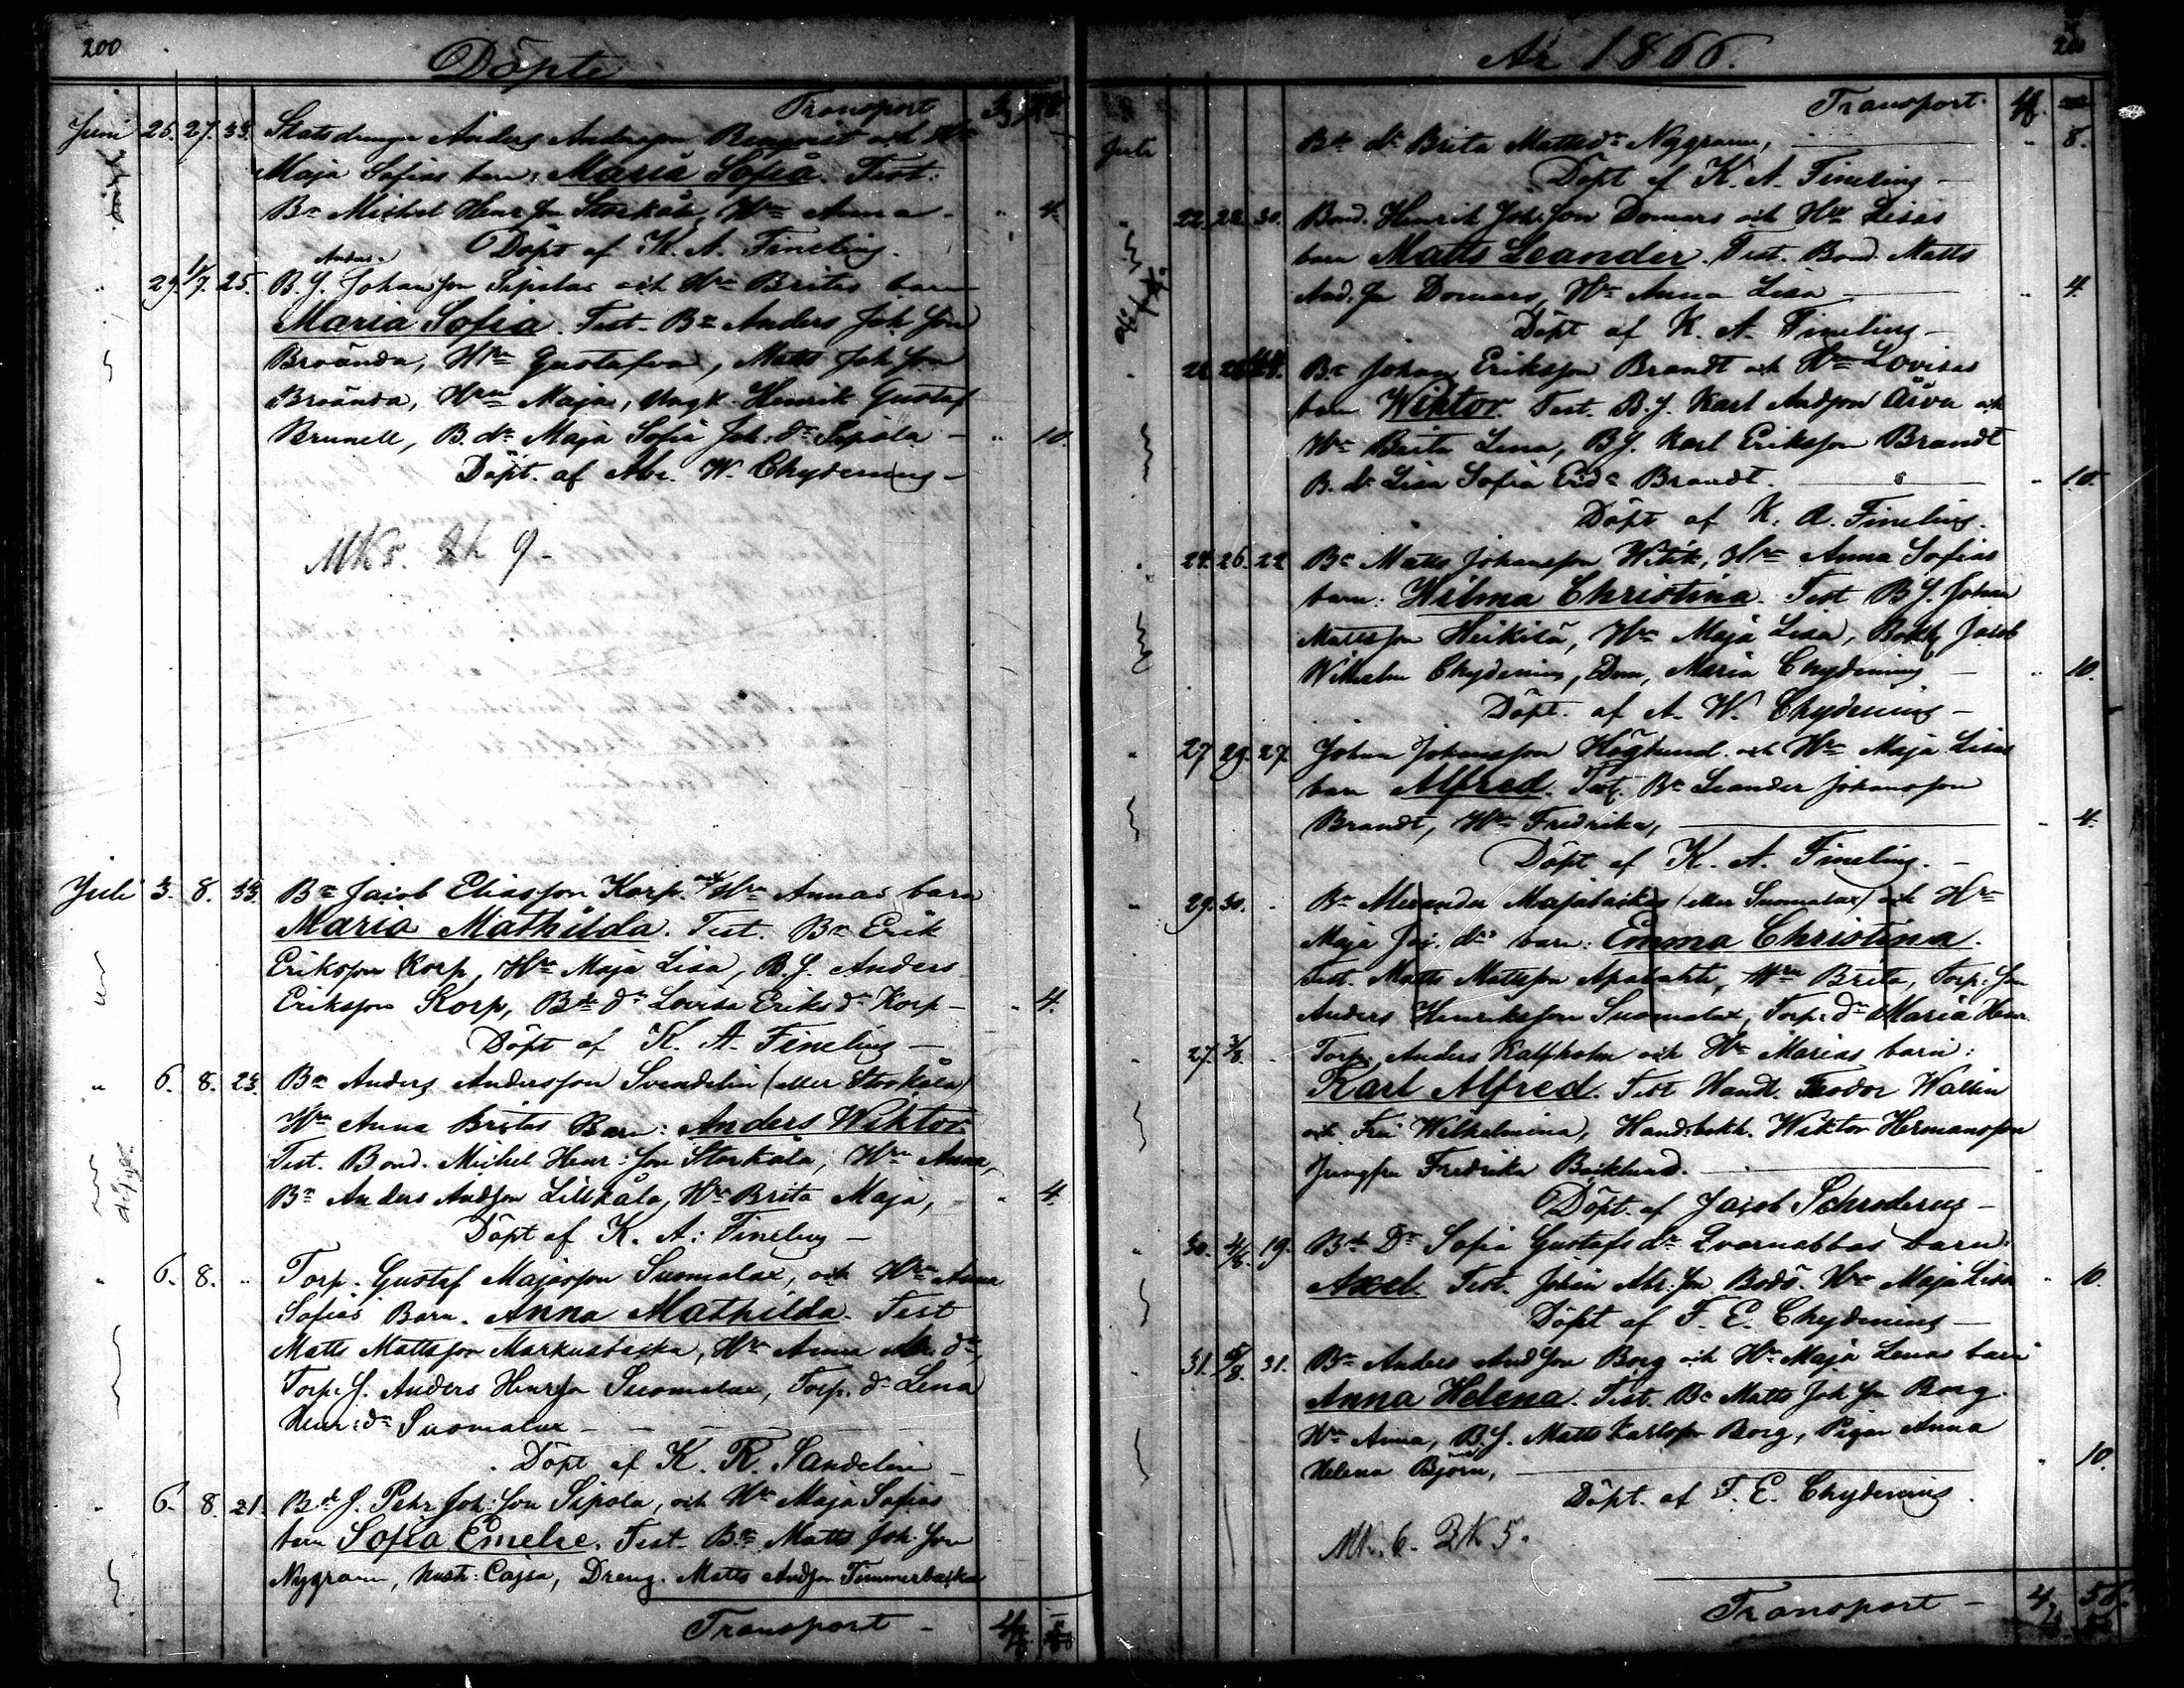 200
Döpte
Transport
Juni 25. 27. 33. Statsdrenge Anders Andersson och Hn
Maja Sofias barn: Maria Sofia. Test:
Bn Michel Henr Son Storkåla, Hn Anna - " 4.
Döpt af K. A. Fineling.
Anders
" 29. 1/7. 25. B. S. Johansson Sipola och Hn Britas barn
Maria Sofia. Test. Bn Anders Joh Son
Broända, Hn Gustafva, Matts Joh Son
Broända, Hn Maja, Yngk. Henrik Gustaf
Brunell, B. dr Maja Sofia Joh: dr Sipola - " 10.
Döpt. af Abr. W. Chydenius -
Mk 8. Qk 9 -
Juli 3. 8. 33. Bn Jacob Eliasson Korp. och Hn Annas barn
Maria Mathilda. Test. Bn Erik
Eriksson Korp, Hn Maja Lisa, B. S. Anders
Eriksson Korp, Bde dr Lovisa Eriks dr Korp - " 4.
Döpt af K. A. Fineling -
" 6. 8. 23. Bn Anders Andersson Svendelin (eller Storkåla)
Hn Anna Britas Barn: Anders Wiktor.
Test. Bond. Michel Henr: Son Storkåla, Hn Anna,
Bn Anders Andson Lillkåla, Hn Brita Maja, " 4.
Döpt af K. A: Fineling -
" 6. 8. " Torp. Gustaf Majasson Suomalax, och Hn Anna
Sofias Barn. Anna Mathilda. Test
Matts Mattsson Markusbacka, Hn Anna dr,
Torp. S. Anders Henrson Suomalax, Torp. dr Lena
Henr: dr Suomalax -
Döpt af K. R. Sandelin -
" 6. 8. 21. Bd S. Pehr Joh: Son Sipola, och Hn Maja Sofias
barn Sofia Emelie. Test. Bn Matts Joh Son
Nygrann, hust: Cajsa, Dreng. Matts Andson Timmerbacka
Transport -
År 1866.
Transport.
Juli Bde dr Brita Matts dr Nygrann, " 8.
Döpt af K. A. Fineling -
" 22. 22. 30. Bond. Henrik Joh: Son Domars och Hn Lisas
barn Matts Leander. Test. Bond. Matts
And. Son Domars, Hn Anna Lisa " 4.
Döpt af K. A. Fineling -
" Bn Johan Eriksson Brandt och Hn Lovisas
barn Wiktor. Test. B. S. Karl Andson och
Hn Brita Lena, B S. Karl Eriksson Brandt
B. dr Lisa Sofia Brandt. " 10.
Döpt af K. A. Fineling.
" 24. 26. 22 Bn Matts Johansson Witik, Hn Anna Sofias
barn: Wilma Christina. Test B S. Johan
Mattsson Heikilä, Hn Maja Lisa, Bokh. Jacob
Wilhelm Chydenius, Dem. Maria Chydenius - " 10.
Döpt. af A. W. Chydenius -
" 27 29. 27. Johan Johansson Höglund och Hn Maja Lisas
barn Alfred. Test. Bn Leander Johansson
Brandt, Hn Fredrika, - 4.
Döpt af K. A. Fineling. -
" 29. 30. Bn Alexander Majabacka (eller Suomalax) och Hn
Maja dr barn: Emma Christina.
Test. Matts Mattsson, Hn Brita, Torp: Son
Anders Henriksson Suomalax, Torp: dr Maria Henr.
" 27. 3/8. Torp. Anders Kalfholm och Hn Marias barn:
Karl Alfred. Test Handl. Teodor Wallin
och Fru Wilhelmina, Hand.bokh. Wiktor Hermansson
Jungfru Fredrika Backlund.
Döpt. af Jacob Schroderus -
" 30. 19. Bde Dr Sofia Gustafs dr Qvarnabbas barn:
Axel. Test. Johan Abr: Son Bodö. Hn Maja Lisa " 10.
Döpt af F. E. Chydenius -
" 31. 5/8. 31. Bn Anders And Son Borg och Hn Maja Lenas barn
Anna Helena. Test. Bn Matts Joh Son Borg.
Hn Anna, B. S. Matts Karlsson Borg, Pigan Anna
Helena Björn, " 10.
Döpt. af F. E. Chydenius.
Mk. 6. Qk 5.
Transport -